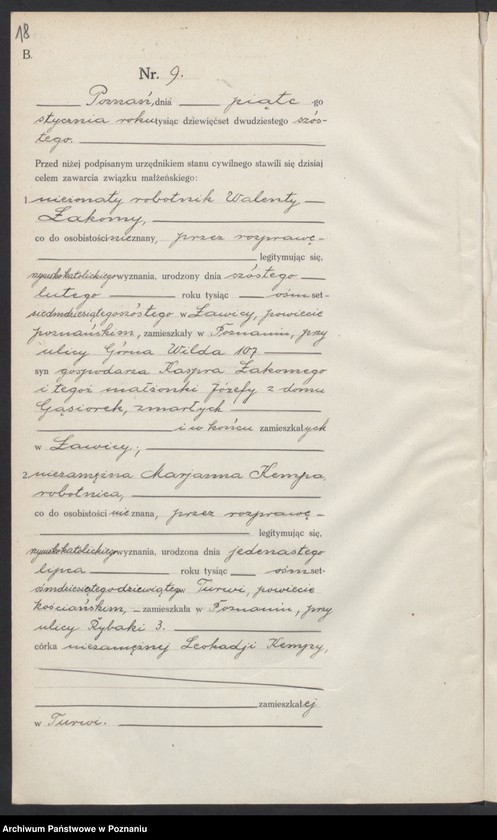 18
B.
Nr. 9.
Poznań, dnia piąte go
stycznia roku tysiąc dziewięćset dwudziestego szós-
tego.
Przed niżej podpisanym urzędnikiem stanu cywilnego stawili się dzisiaj
celem zawarcia związku małżeńskiego:
1. nieżonaty robotnik Walenty
Łakomy,
co do osobistości nieznany, przez rozprawę
legitymując się,
rzymskokatolickiego wyznania, urodzony dnia szóstego
lutego roku tysiąc ośmset-
siedmdziesiątego szóstego w Ławicy, powiecie
poznańskim, zamieszkały w Poznaniu, przy
ulicy Górna Wilda 107
syn gospodarza Kaspra Łakomego
i tegoż małżonki Józefy z domu
Gąsiorek, zmarłych
i w końcu zamieszkałych
w Ławicy;
2. niezamężna Marjanna Kempa,
robotnica,
co do osobistości nieznana, przez rozprawę
legitymując się,
rzymskokatolickiego wyznania, urodzona dnia jedenastego
lipca roku tysiąc ośmset-
ośmdziesiątego dziewiątego w Turwi, powiecie
kościańskim, zamieszkała w Poznaniu, przy
ulicy Rybaki 3.
córka niezamężnej Leokadji Kempy,
zamieszkałej
w Turwi.
Archiwum Państwowe w Poznaniu